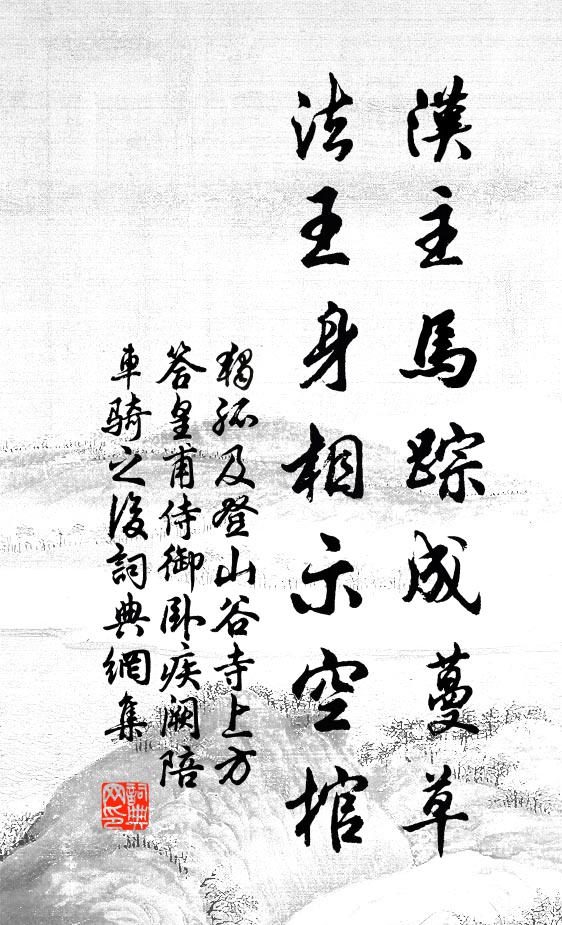 漢主馬踪成蔓草
法王身相示空棺
獨孤及登山谷寺上方
答皇甫侍御卧疾阙陪
車騎之後詞典網集
詞典
网印